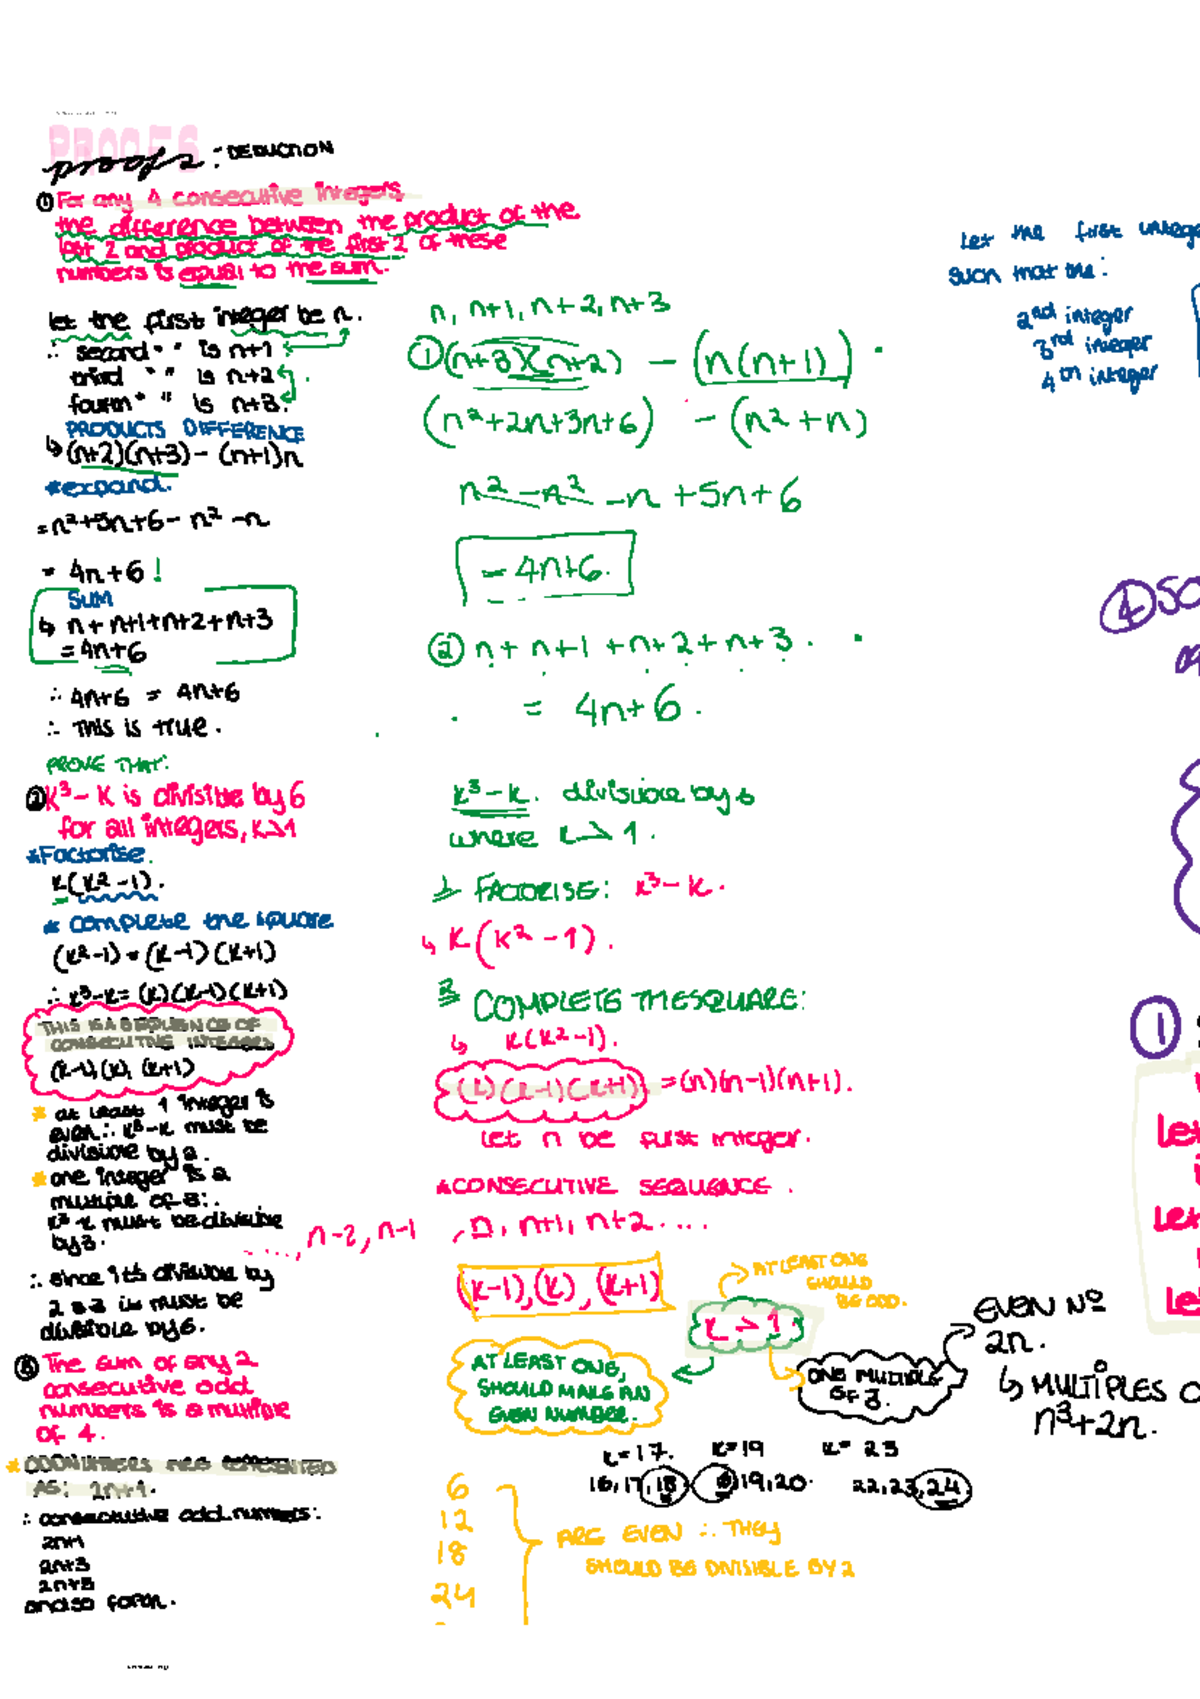 PROOFS
proofs : DEDUCTION
① For any 4 consecutive integers
the difference between the product of the
last 2 and product of the first 2 of these
numbers is equal to the sum.
let the first integer be n.
∴ second " " is n+1
" " is n+2
fourth " " is n+3.
PRODUCTS DIFFERENCE
↳ (n+2)(n+3) - (n+1)n
*expand.
= n²+5n+6 - n² - n
= 4n+6 !
SUM
↳ n + n+1+n+2+n+3
= 4n+6
∴ 4n+6 = 4n+6
∴ This is true.
PROVE THAT:
② K³- K is divisible by 6
for all integers, K>1
*Factorise.
k(k²-1).
* complete the square
(k²-1) = (k-1)(k+1)
∴ k³-k = (k)(k-1)(k+1)
THIS IS A SEQUENCE OF
CONSECUTIVE INTEGERS
(k-1), (k), (k+1)
* at least 1 integer is
even ∴ k³-k must be
divisible by 2.
* one integer is a
multiple of 3 ∴
k³-k must be divisible
by 3.
∴ since its divisible by
2 & 3 it must be
divisible by 6.
③ The sum of any 2
consecutive odd
numbers is a multiple
of 4.
* ODD NUMBERS ARE REPRESENTED
AS: 2n+1.
∴ consecutive odd numbers:
2n+1
2n+3
2n+5
and so forth.
n, n+1, n+2, n+3
① (n+3)(n+2) - (n(n+1))
(n²+2n+3n+6) - (n²+n)
n² - n² - n + 5n + 6
= 4n+6.
② n + n+1 + n+2 + n+3.
= 4n+6.
k³-k. divisible by 6
where k > 1.
1 FACTORISE: k³- k.
↳ K(K²-1).
2 COMPLETE THE SQUARE:
↳ k(k²-1).
(k)(k-1)(k+1) = (n)(n-1)(n+1).
let n be first integer.
*CONSECUTIVE SEQUENCE.
...., n-2, n-1, n, n+1, n+2....
(k-1), (k), (k+1)
AT LEAST ONE
SHOULD
BE ODD.
k > 1.
AT LEAST ONE,
SHOULD MAKE AN
EVEN NUMBER.
ONE MULTIPLE
OF 3.
EVEN Nº
2n.
↳ MULTIPLES O
n³+2n.
k=17. k=19 k= 23
16,17,18 18,19,20. 22,23,24
6
12
18
24
ARE EVEN ∴ THEY
SHOULD BE DIVISIBLE BY 2
Let the first intege
such that the:
2nd integer
3rd integer
4th integer
④ SO
①
Let
Let
Let